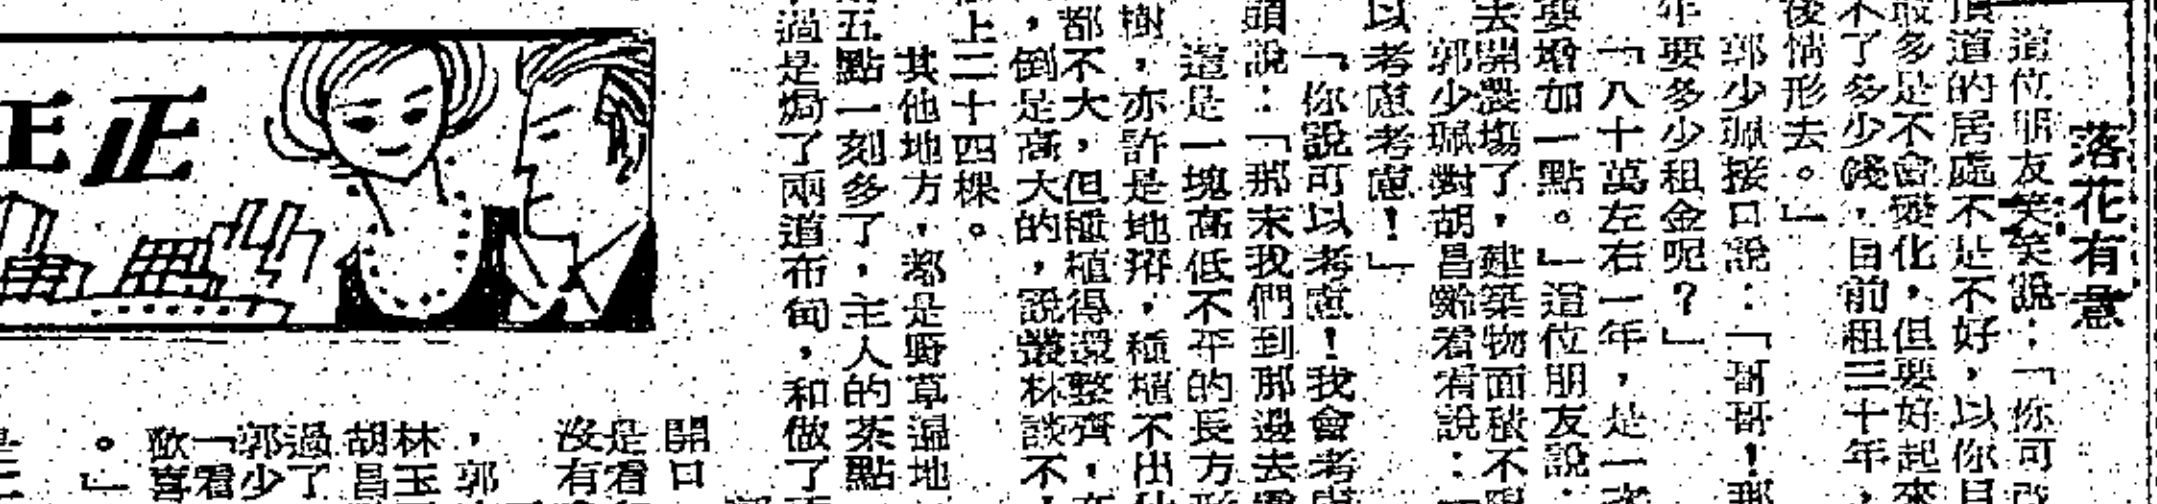 落花有意
這位朋友笑笑說：「你可改
頂道的居處不是不好，以你目
最多是不會變化，但要好起來
不了多少錢，目前租三十年，
後情形去。」
郭少珮接口說：「哥哥！那
年要多少租金呢？」
「八十萬左右一年，是一次
要增加一點。」這位朋友說：
去開農場了，建築物面積不
郭少珮對胡昌齡看看說：「
以考慮考慮！」
「你說可以考慮！我會考慮
頭說：「那末我們到那邊去
這是一塊高低不平的長方形
樹，亦許是地瘠，種植不出
都不大，但種植得還整齊，在
，倒是高大的，說叢林談不
上二十四棵。
其他地方，都是野草遍地
五點一刻多了，主人的茶點
過是焗了兩道布甸，和做了
正
王
開口
是看
沒有
，郭
林玉
胡昌
過了
郭少
「看
歡喜
。」